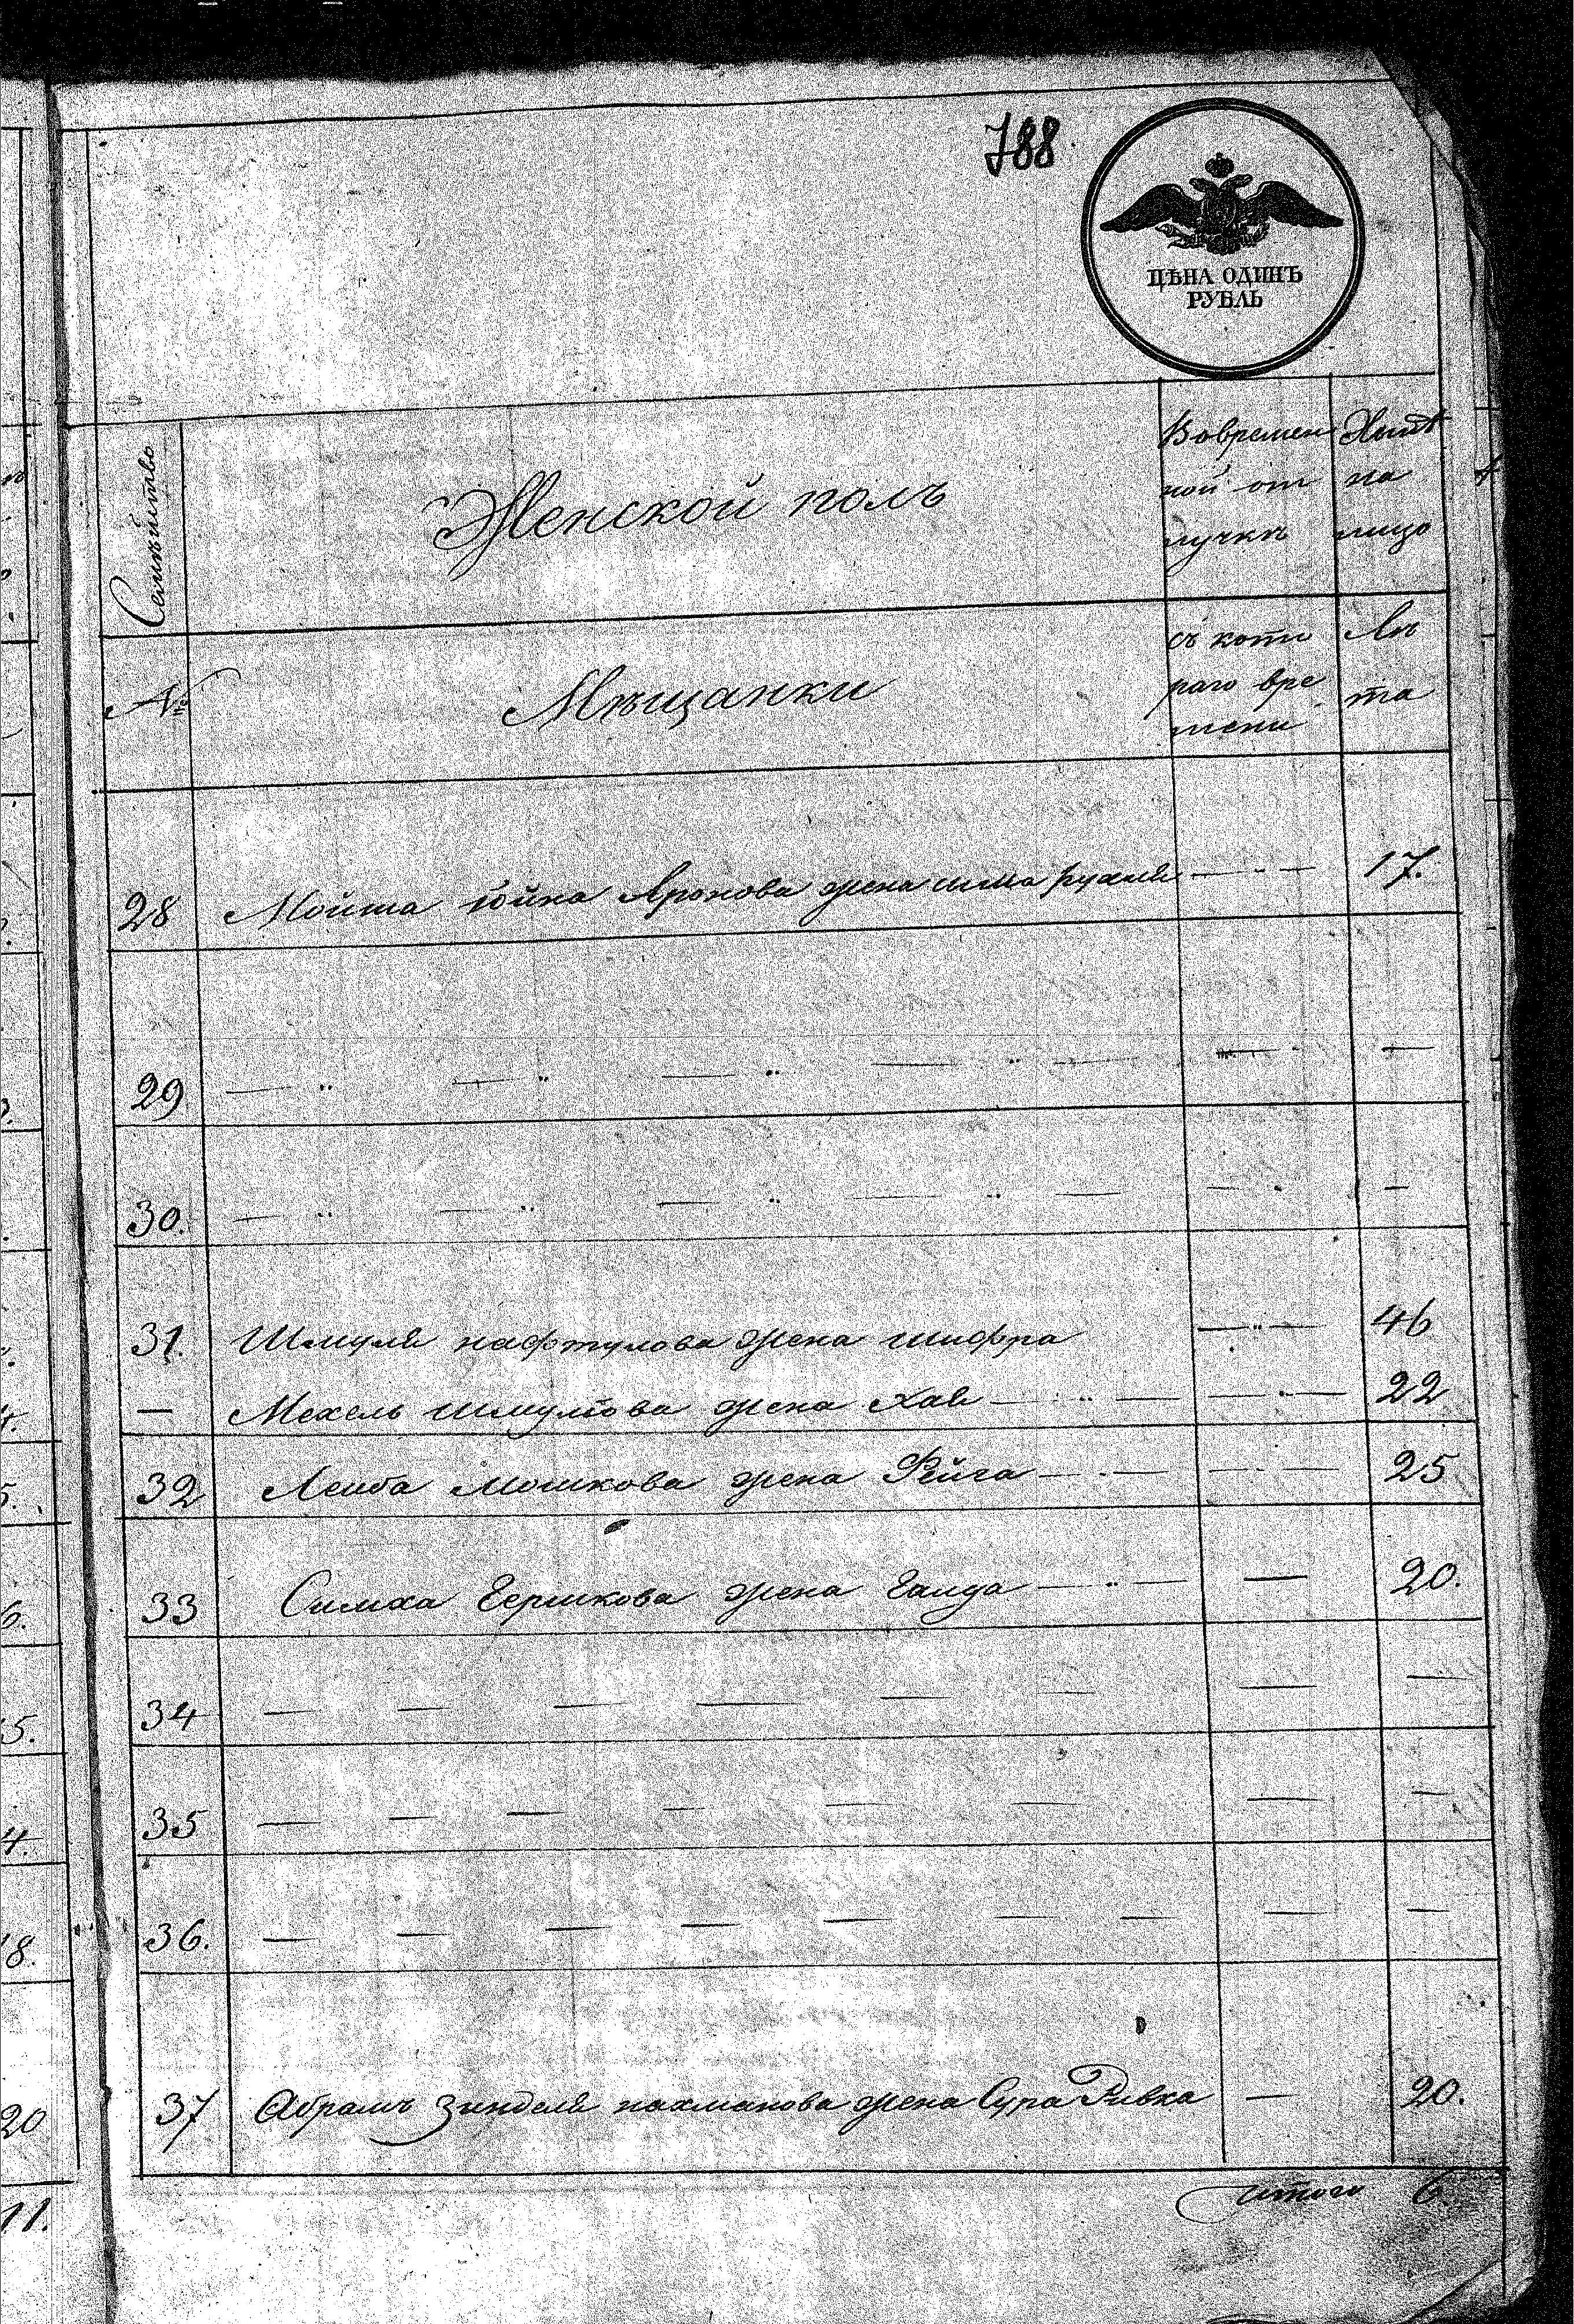 788
ЦѢНА ОДИНЪ
РУБЛЬ
Семѣйство
Женской полъ
Вовремен
ной от
лучкѣ
Нынѣ
на
лицо
№
Мѣщанки
съ кото
раго вре
мени
Лѣ
та
28 Мойша Іойна Аронова жена сима рухля — " — 17.
29 — " — " — " — " — — —
30. — " — " — " — " — — —
31. Шмуля нафтулова жена шифра — " — 46
— Мехель шмулiова жена Хая — " — — " — 22
32 Лейба Мошкова жена Фейга — " — — " — 25
33 Симха Гершкова жена — " — — 20.
34 — — — — — — — —
35 — — — — — — — —
36. — — — — — — — — —
37 Абрамъ Зинделя нахманова жена Сура Ривка — 20.
итого 6
5.
4.
18.
20
11.